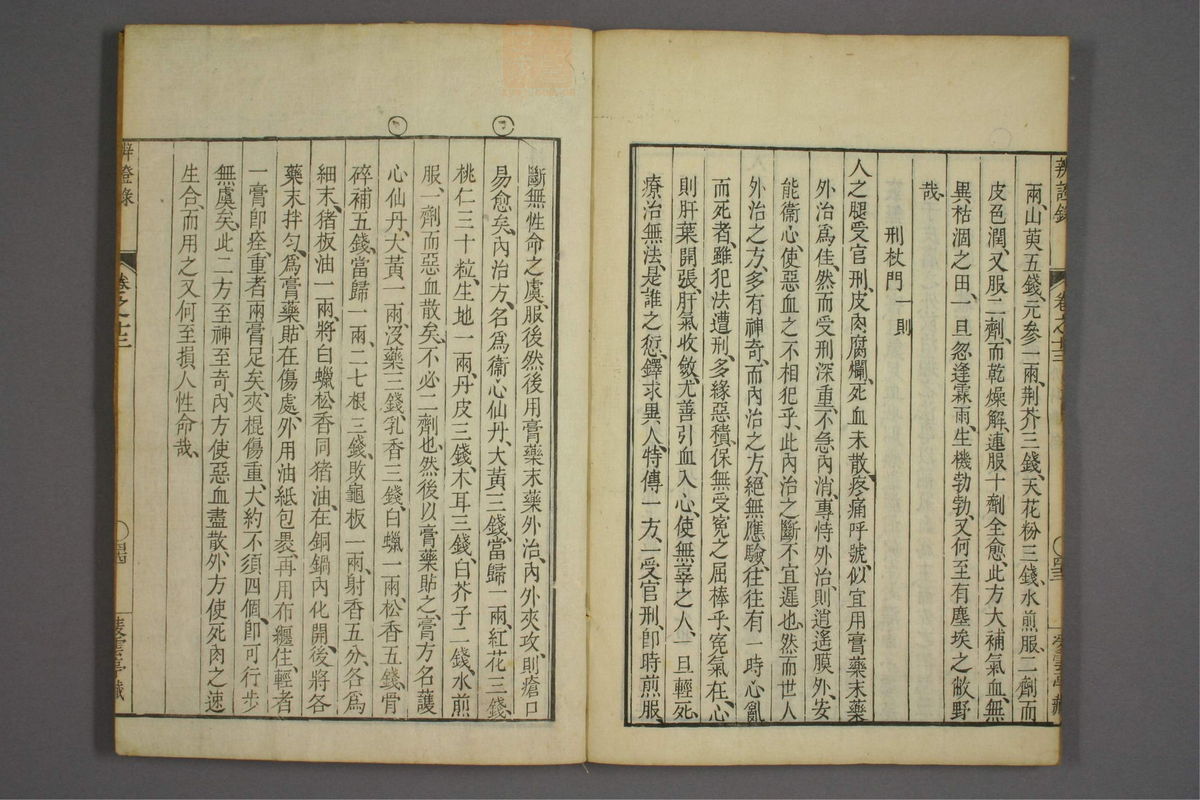 辨證錄
卷之十三
兩、山萸五錢、元參一兩、荆芥三錢、天花粉三錢、水煎服、二劑而
皮色潤、又服二劑、而乾燥解、連服十劑全愈、此方大補氣血、無
異枯涸之田、一旦忽逢霖雨、生機勃勃、又何至有塵埃之敝野
哉、
刑杖門 一則
人之腿受官刑、皮肉腐爛、死血未散、疼痛呼號、似宜用膏藥末藥
外治爲佳、然而受刑深重、不急內消、專恃外治、則逍遙膜外、安
能衞心、使惡血之不相犯乎、此內治之斷不宜遲也、然而世人
外治之方、多有神奇、而內治之方、絕無應驗、往往有一時心亂
而死者、雖犯法遭刑、多緣惡積、保無受寃之屈棒乎、寃氣在心、
則肝葉開張、肝氣收斂、尤善引血入心、使無辜之人、一旦輕死、
療治無法、是誰之愆、鐸求異人、特傳一方、一受官刑、卽時煎服、
斷無性命之虞、服後然後用膏藥末藥外治、內外夾攻、則瘡口
易愈矣、內治方、名爲衞心仙丹、大黃三錢、當歸一兩、紅花三錢、
桃仁三十粒、生地一兩、丹皮三錢、木耳三錢、白芥子二錢、水煎
服、一劑而惡血散矣、不必二劑也、然後以膏藥貼之、膏方名護
心仙丹、大黃一兩、沒藥三錢、乳香三錢、白蠟一兩、松香五錢、骨
碎補五錢、當歸一兩、二七根三錢、敗龜板一兩、射香五分、各爲
細末、猪板油一兩、將白蠟松香同猪油、在銅鍋內化開、後將各
藥末拌匀、爲膏藥、貼在傷處、外用油紙包裹、再用布纏住、輕者
一膏卽痊、重者兩膏足矣、夾棍傷重、大約不須四個、卽可行步
無虞矣、此二方至神至奇、內方使惡血盡散、外方使死肉之速
生合、而用之又何至損人性命哉、
辨證錄
卷之十三